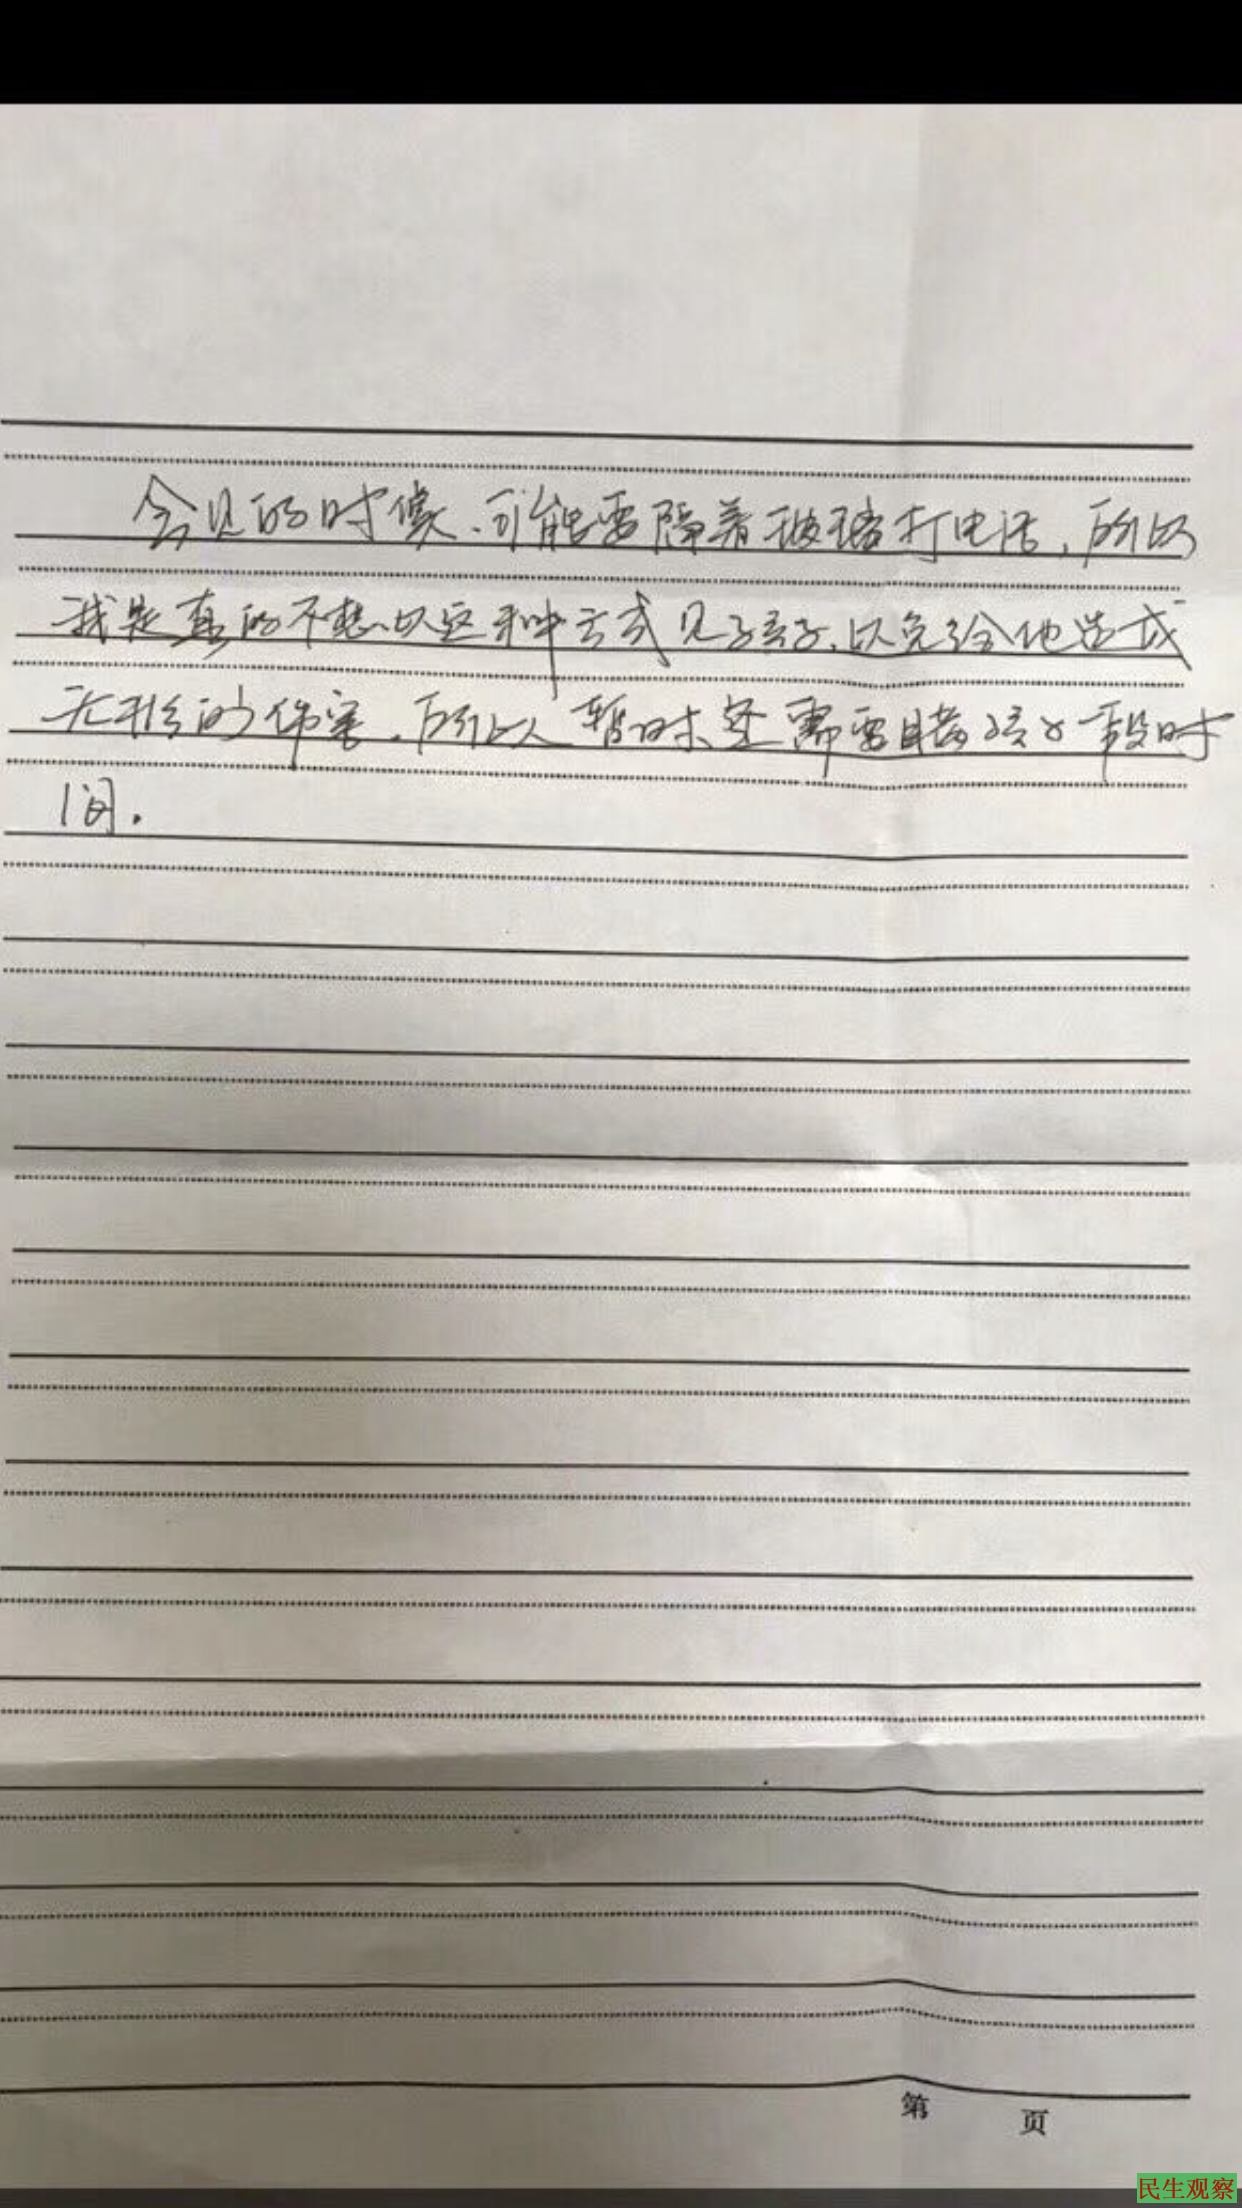 会见的时候、可能要隔着玻璃打电话，所以
我是真的不想以这种方式见孩子，以免给他造成
无形的伤害，所以暂时还需要瞒孩子一段时
间.
第 页
民生观察